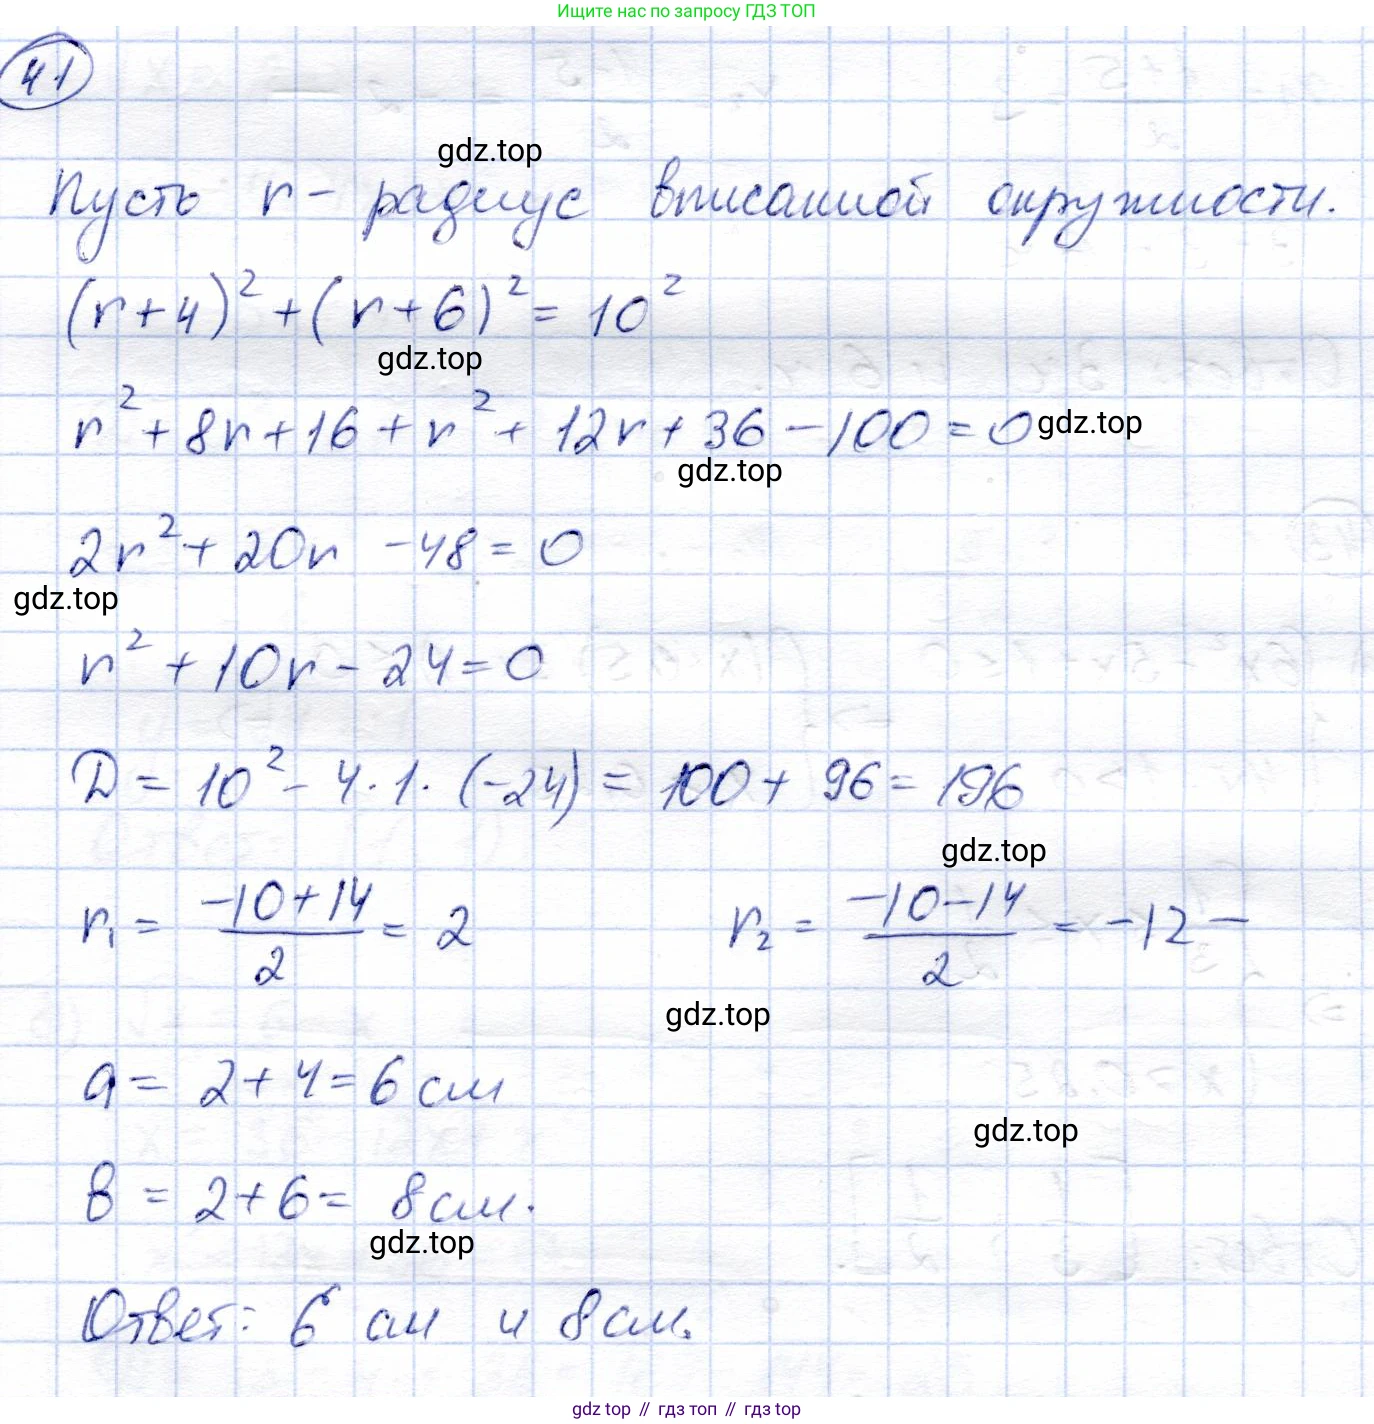 Ищите нас по запросу ГДЗ ТОП
41
gdz.top
Пусть r – радиус вписанной окружности.
(r+4)² + (r+6)² = 10²
gdz.top
r² + 8r + 16 + r² + 12r + 36 – 100 = 0
gdz.top
gdz.top
2r² + 20r – 48 = 0
gdz.top
r² + 10r – 24 = 0
D = 10² – 4·1·(–24) = 100 + 96 = 196
gdz.top
r₁ = (–10+14)/2 = 2 r₂ = (–10–14)/2 = –12 –
gdz.top
a = 2 + 4 = 6 см
gdz.top
в = 2 + 6 = 8 см.
gdz.top
Ответ: 6 см и 8 см.
gdz top // гдз топ // гдз top